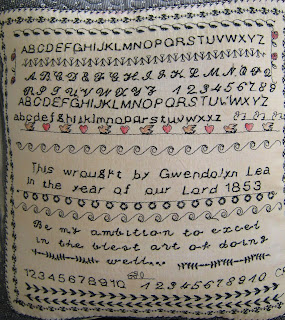 ABCDEFGHIJKLMNOPQRSTUVWXYZ
ABCDEFGHIJKLMNOPQ
RSTUVWXYZ 123456789
ABCDEFGHIJKLMNOPQRSTUVWXYZ
abcdefghijklmnopqrstuvwxyz
This wrought by Gwendolyn Lea
in the year of our Lord 1853
Be my ambition to excel
in the blest art of doing
well...
12345678910 12345678910